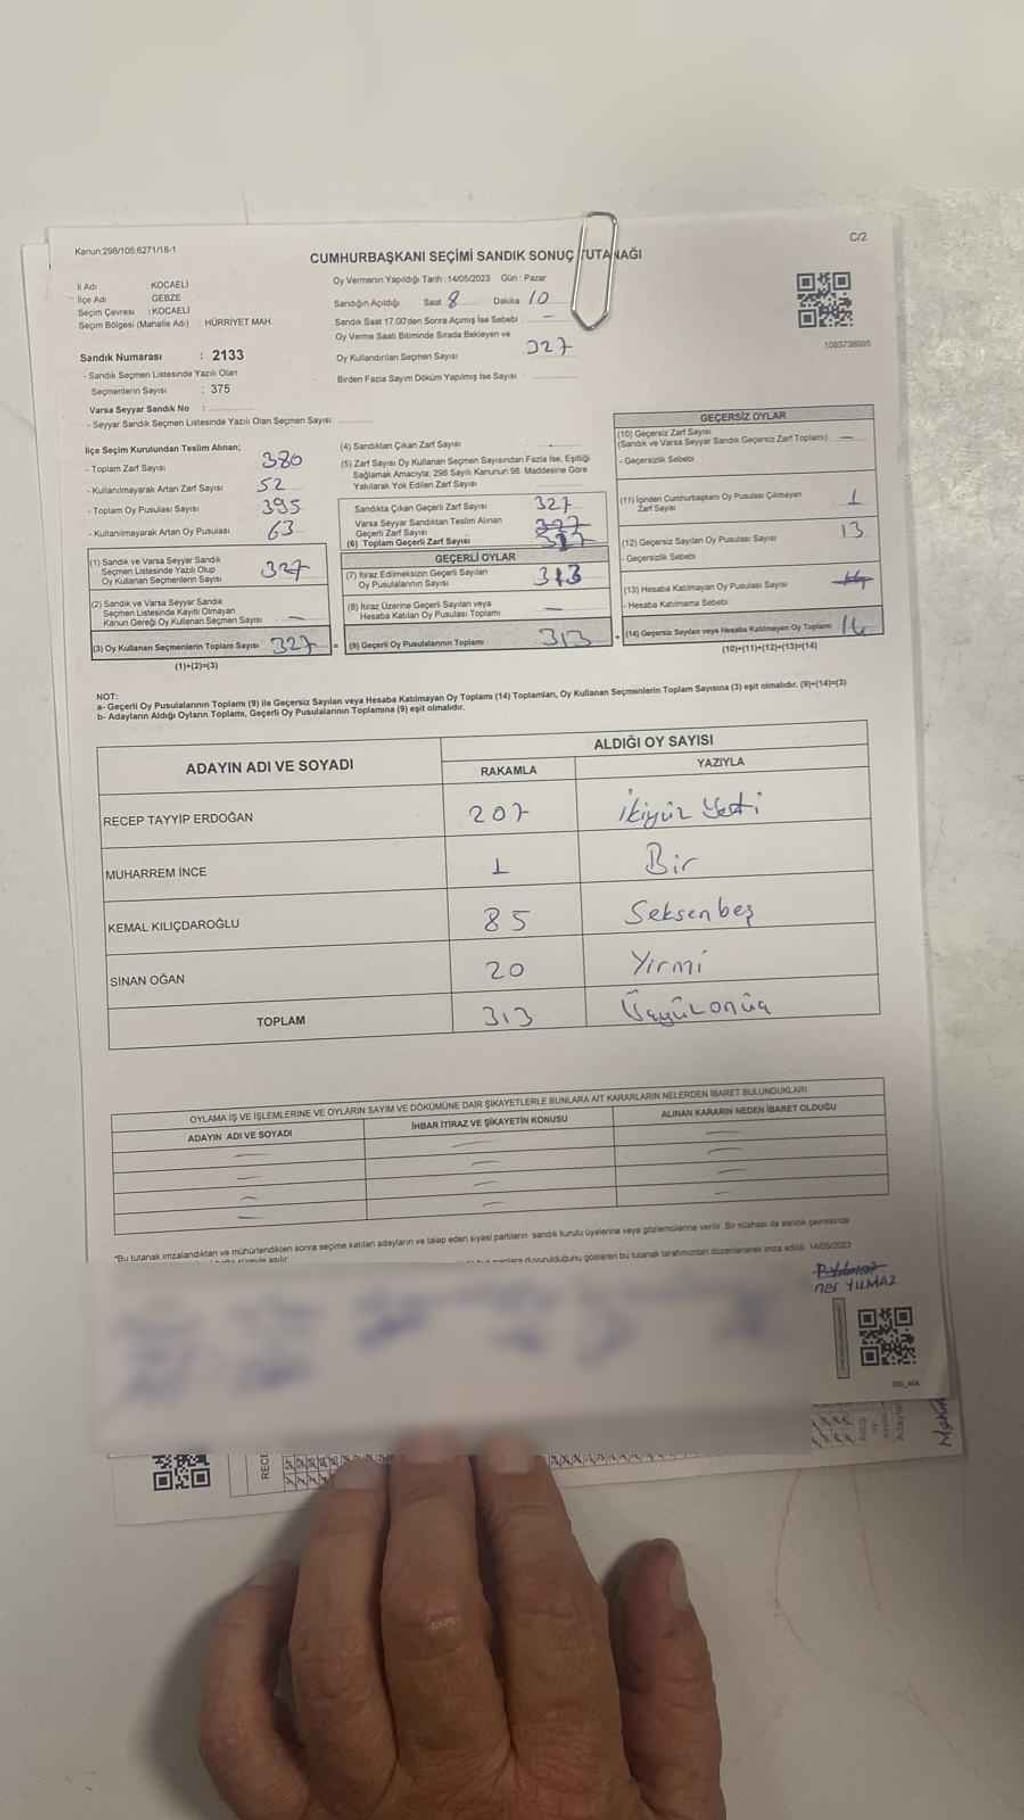 Kanun:298/105:6271/16-1
C/2
CUMHURBAŞKANI SEÇİMİ SANDIK SONUÇ TUTANAĞI
İl Adı KOCAELİ
İlçe Adı GEBZE
Seçim Çevresi : KOCAELİ
Seçim Bölgesi (Mahalle Adı) HÜRRİYET MAH.
Oy Vermenin Yapıldığı Tarih : 14/05/2023 Gün : Pazar
Sandığın Açıldığı Saat 8 Dakika 10
Sandık Saat 17.00'den Sonra Açılmış İse Sebebi —
Oy Verme Saati Bitiminde Sırada Bekleyen ve
Oy Kullandırılan Seçmen Sayısı 327
Birden Fazla Sayım Döküm Yapılmış İse Sayısı
Sandık Numarası : 2133
- Sandık Seçmen Listesinde Yazılı Olan
Seçmenlerin Sayısı : 375
Varsa Seyyar Sandık No :
- Seyyar Sandık Seçmen Listesinde Yazılı Olan Seçmen Sayısı
İlçe Seçim Kurulundan Teslim Alınan;
- Toplam Zarf Sayısı 380
- Kullanılmayarak Artan Zarf Sayısı 52
- Toplam Oy Pusulası Sayısı 395
- Kullanılmayarak Artan Oy Pusulası 63
(1) Sandık ve Varsa Seyyar Sandık
Seçmen Listesinde Yazılı Olup
Oy Kullanan Seçmenlerin Sayısı 327
(2) Sandık ve Varsa Seyyar Sandık
Seçmen Listesinde Kayıtlı Olmayan
Kanun Gereği Oy Kullanan Seçmen Sayısı —
(3) Oy Kullanan Seçmenlerin Toplam Sayısı 327
(1)+(2)=(3)
(4) Sandıktan Çıkan Zarf Sayısı
(5) Zarf Sayısı Oy Kullanan Seçmen Sayısından Fazla İse, Eşitliği
Sağlamak Amacıyla; 298 Sayılı Kanunun 98. Maddesine Göre
Yakılarak Yok Edilen Zarf Sayısı
Sandıkta Çıkan Geçerli Zarf Sayısı 327
Varsa Seyyar Sandıktan Teslim Alınan
Geçerli Zarf Sayısı
(6) Toplam Geçerli Zarf Sayısı
GEÇERLİ OYLAR
(7) İtiraz Edilmeksizin Geçerli Sayılan
Oy Pusulalarının Sayısı 313
(8) İtiraz Üzerine Geçerli Sayılan veya
Hesaba Katılan Oy Pusulası Toplamı —
(9) Geçerli Oy Pusulalarının Toplamı 313
GEÇERSİZ OYLAR
(10) Geçersiz Zarf Sayısı
(Sandık ve Varsa Seyyar Sandık Geçersiz Zarf Toplamı) —
- Geçersizlik Sebebi
(11) İçinden Cumhurbaşkanı Oy Pusulası Çıkmayan
Zarf Sayısı 1
(12) Geçersiz Sayılan Oy Pusulası Sayısı 13
- Geçersizlik Sebebi
(13) Hesaba Katılmayan Oy Pusulası Sayısı
- Hesaba Katılmama Sebebi
(14) Geçersiz Sayılan veya Hesaba Katılmayan Oy Toplamı 14
(10)+(11)+(12)+(13)=(14)
NOT:
a- Geçerli Oy Pusulalarının Toplamı (9) ile Geçersiz Sayılan veya Hesaba Katılmayan Oy Toplamı (14) Toplamları, Oy Kullanan Seçmenlerin Toplam Sayısına (3) eşit olmalıdır. (9)+(14)=(3)
b- Adayların Aldığı Oyların Toplamı, Geçerli Oy Pusulalarının Toplamına (9) eşit olmalıdır.
ADAYIN ADI VE SOYADI
ALDIĞI OY SAYISI
RAKAMLA YAZIYLA
RECEP TAYYİP ERDOĞAN 207 İkiyüz Yedi
MUHARREM İNCE 1 Bir
KEMAL KILIÇDAROĞLU 85 Seksenbeş
SİNAN OĞAN 20 Yirmi
TOPLAM 313 Üçyüzonüç
OYLAMA İŞ VE İŞLEMLERİNE VE OYLARIN SAYIM VE DÖKÜMÜNE DAİR ŞİKAYETLERLE BUNLARA AİT KARARLARIN NELERDEN İBARET BULUNDUKLARI
ADAYIN ADI VE SOYADI İHBAR İTİRAZ VE ŞİKAYETİN KONUSU ALINAN KARARIN NEDEN İBARET OLDUĞU
*Bu tutanak imzalandıktan ve mühürlendikten sonra seçime katılan adayların ve talep eden siyasi partilerin sandık kurulu üyelerine veya gözlemcilerine verilir. Bir nüshası da sandık çevresinde
YILMAZ
RECE